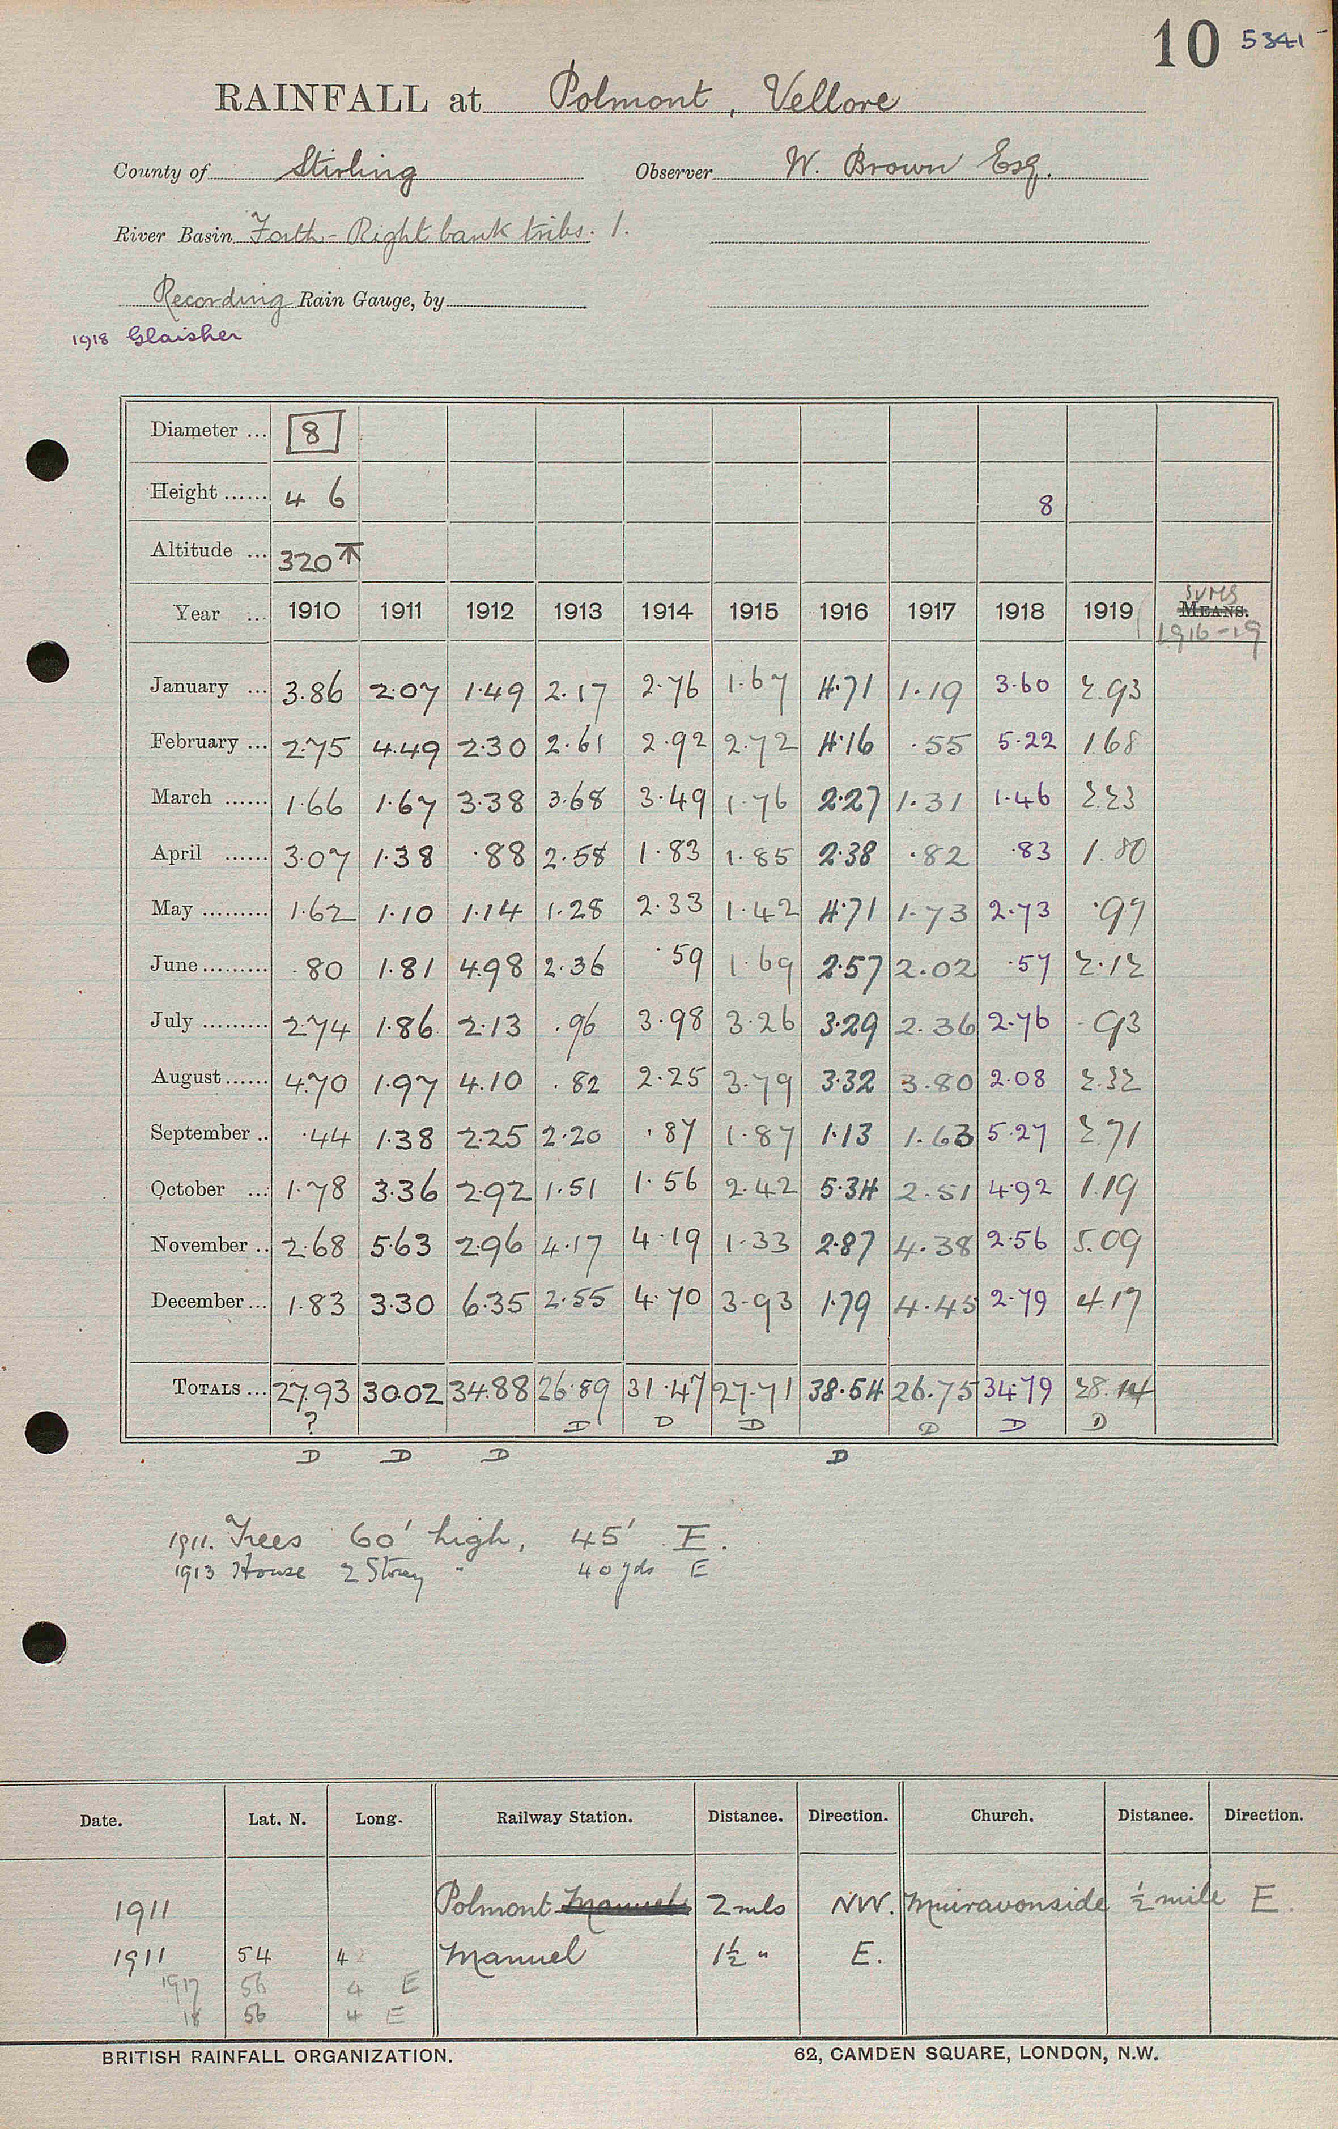 10 5341
RAINFALL at Polmont, Vellore
County of Stirling Observer W. Brown Esq.
River Basin Forth - Right bank tribs. 1.
Recording Rain Gauge, by
1918 Glaisher
Diameter ... 8
Height ...... 4 6 8
Altitude ... 320
Year ... 1910 1911 1912 1913 1914 1915 1916 1917 1918 1919 MEANS. SUMS 1916-19
January ... 3.86 2.07 1.49 2.17 2.76 1.67 4.71 1.19 3.60 2.93
February ... 2.75 4.49 2.30 2.61 2.92 2.72 4.16 .55 5.22 1.68
March ...... 1.66 1.67 3.38 3.68 3.49 1.76 2.27 1.31 1.46 2.23
April ...... 3.07 1.38 .88 2.58 1.83 1.85 2.38 .82 .83 1.80
May ......... 1.62 1.10 1.14 1.28 2.33 1.42 4.71 1.73 2.73 .97
June ......... .80 1.81 4.98 2.36 .59 1.69 2.57 2.02 .57 2.12
July ......... 2.74 1.86 2.13 .96 3.98 3.26 3.29 2.36 2.76 .93
August ...... 4.70 1.97 4.10 .82 2.25 3.79 3.32 3.80 2.08 2.32
September .. .44 1.38 2.25 2.20 .87 1.87 1.13 1.63 5.27 2.71
October ... 1.78 3.36 2.92 1.51 1.56 2.42 5.34 2.51 4.92 1.19
November .. 2.68 5.63 2.96 4.17 4.19 1.33 2.87 4.38 2.56 5.09
December ... 1.83 3.30 6.35 2.55 4.70 3.93 1.79 4.45 2.79 4.17
TOTALS ... 27.93 30.02 34.88 26.89 31.47 27.71 38.54 26.75 34.79 28.14
? D D D D D D
D D D D
1911. Trees 60' high, 45' E.
1913 House 2 Storey " 40 yds E
Date. Lat. N. Long. Railway Station. Distance. Direction. Church. Distance. Direction.
1911 Polmont Manuel 2 mls NW. Muiravonside ½ mile E.
1911 54 4 Manuel 1½ " E.
1917 56 4 E
18 56 4 E
BRITISH RAINFALL ORGANIZATION. 62, CAMDEN SQUARE, LONDON, N.W.